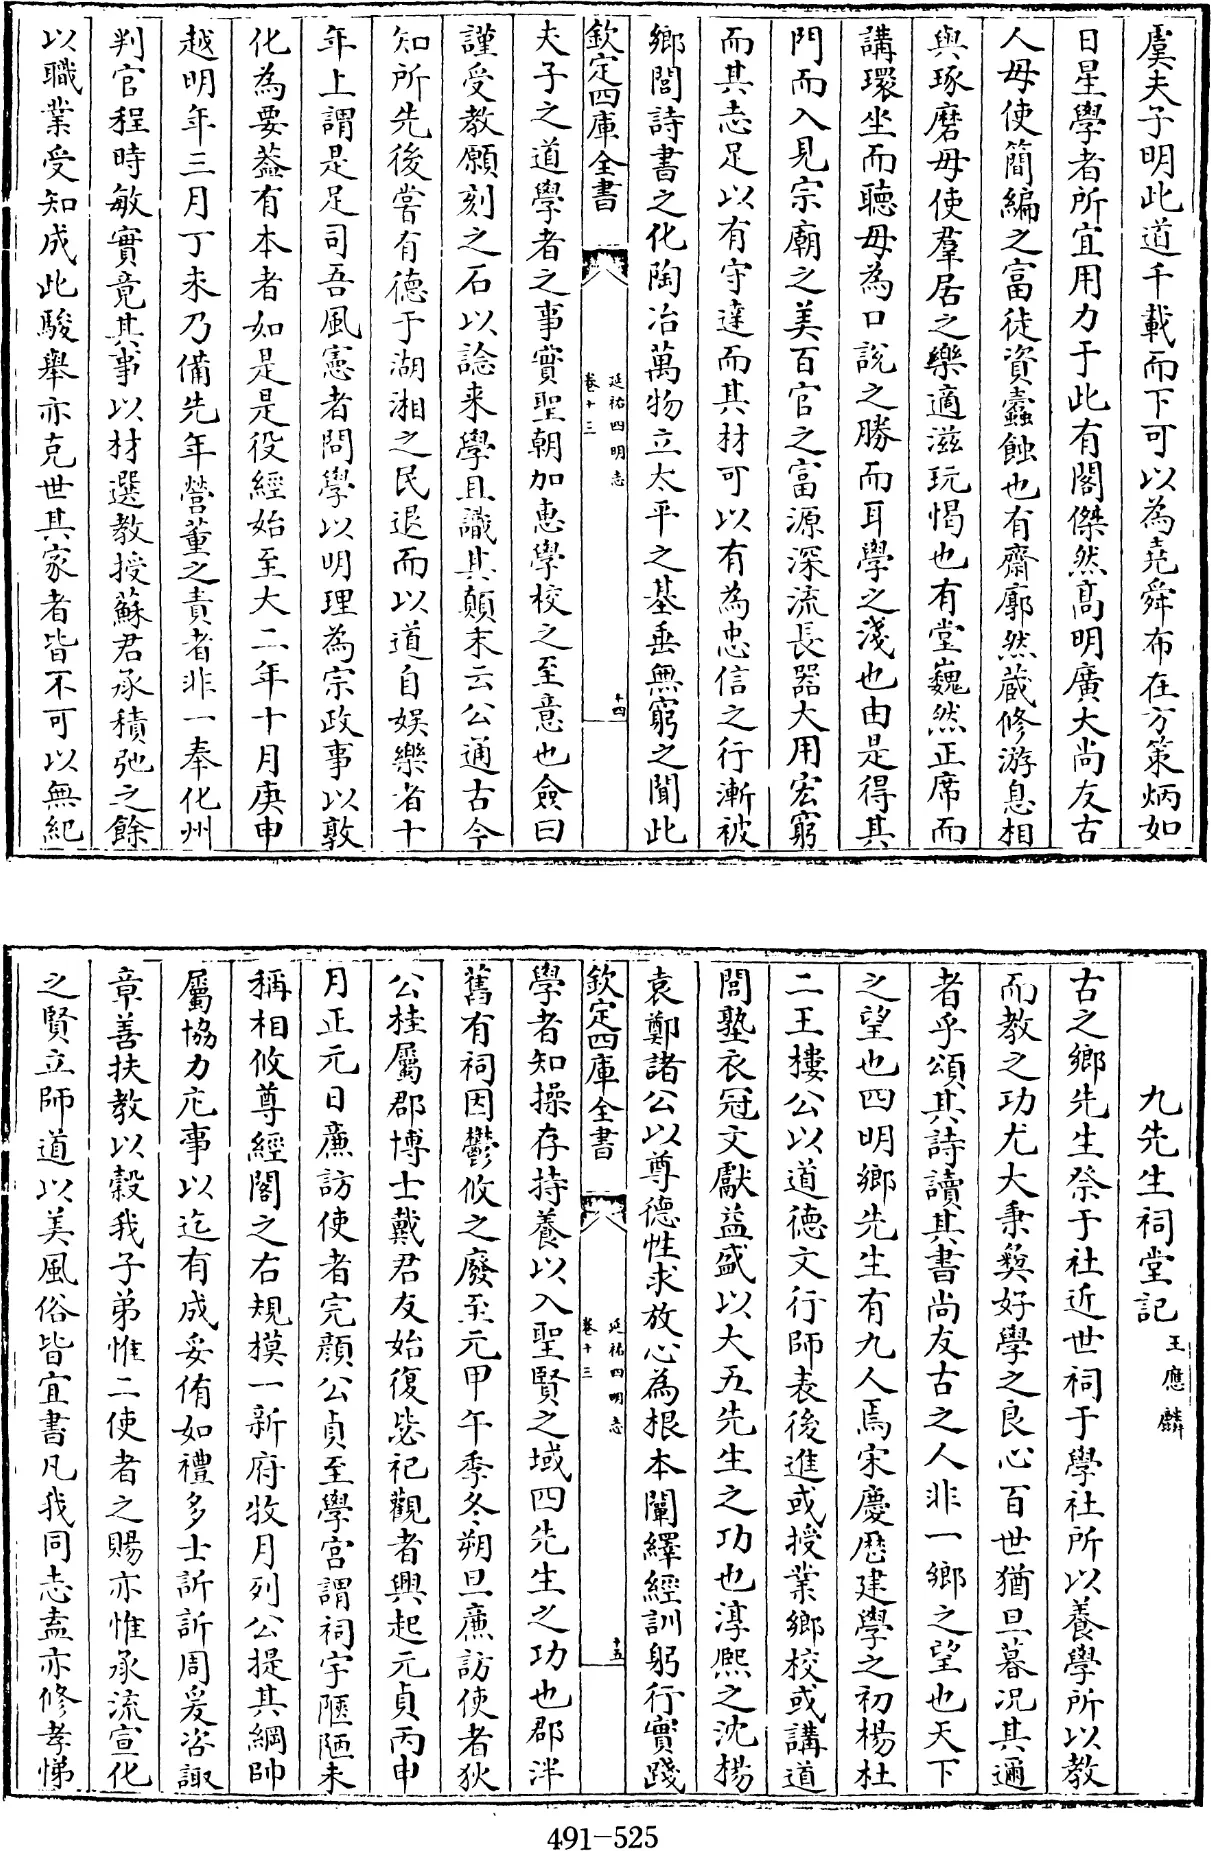 虞夫子明此道千載而下可以為堯舜布在方策炳如
日星學者所宜用力于此有閣傑然髙明廣大尚友古
人毋使簡編之富徒資蠹蝕也有齋廓然蔵修游息相
與琢磨毋使羣居之樂適滋玩愒也有堂巍然正席而
講環坐而聽毋為口說之勝而耳學之淺也由是得其
門而入見宗廟之美百官之富源深流長器大用宏窮
而其志足以有守達而其材可以有為忠信之行漸被
鄉閭詩書之化陶冶萬物立太平之基垂無窮之聞此
欽定四庫全書
延祐四明志
卷十三
十四
夫子之道學者之事實聖朝加惠學校之至意也僉曰
謹受教願刻之石以諗来學且識其顛末云公通古今
知所先後嘗有德于湖湘之民退而以道自娯樂省十
年上謂是足司吾風憲者問學以明理為宗政事以敦
化為要葢有本者如是是役經始至大二年十月庚申
越明年三月丁未乃備先年營董之責者非一奉化州
判官程時敏實竟其事以材選教授蘇君承積弛之餘
以職業受知成此駿舉亦克世其家者皆不可以無紀
九先生祠堂記
王應麟
古之鄉先生祭于社近世祠于學社所以養學所以教
而教之功尤大秉彜好學之良心百世猶旦暮况其邇
者乎頌其詩讀其書尚友古之人非一鄉之望也天下
之望也四明鄉先生有九人焉宋慶歴建學之初楊杜
二王樓公以道德文行師表後進或授業鄉校或講道
閭塾衣冠文獻益盛以大五先生之功也淳熙之沈楊
袁鄭諸公以尊德性求放心為根本闡繹經訓躬行實踐
欽定四庫全書
延祐四明志
卷十三
十五
學者知操存持養以入聖賢之域四先生之功也郡泮
舊有祠因鬱攸之廢至元甲午季冬朔旦亷訪使者狄
公桂屬郡博士戴君友始復毖祀觀者興起元貞丙申
月正元日亷訪使者完顔公貞至學宮謂祠宇陋陋未
稱相攸尊經閣之右規模一新府牧月列公提其綱帥
屬協力庀事以迄有成妥侑如禮多士訢訢周爰咨諏
章善扶教以穀我子弟惟二使者之賜亦惟承流宣化
之賢立師道以美風俗皆宜書凡我同志盍亦修孝悌
491-525